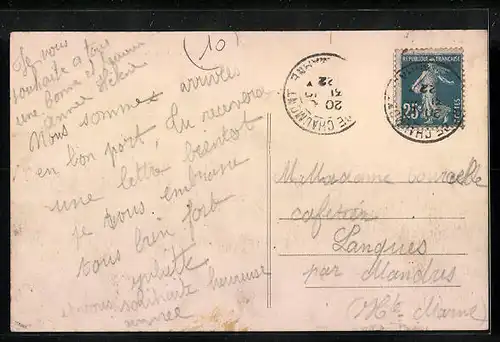 Je vous
souhaite a tous
une bonne et heureuse
année
(10)
Nous sommes arrivées
en bon port, tu recevras
une lettre bientot
je vous embrasse
tous bien fort
Juliette
et vous souhaite heureuse
année
DE CHAUMONT
20
31
22
REPUBLIQUE FRANÇAISE
25
POSTES
M. Madame
cafetier
Langues
par Mandres
Hte Marne